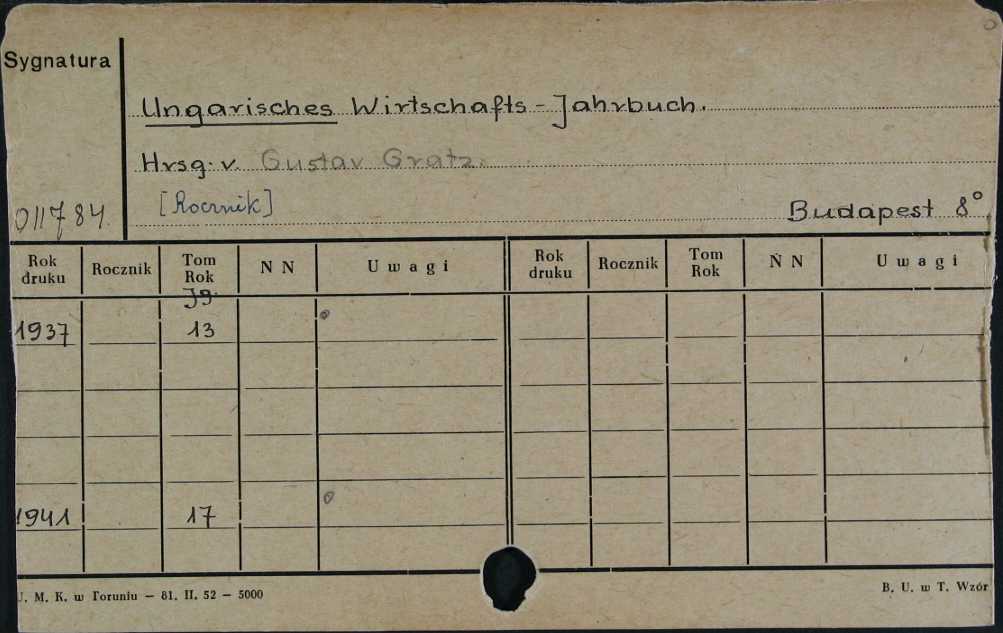 Sygnatura
Ungarisches Wirtschafts-Jahrbuch.
Hrsg. v. Gustav Gratz.
[Rocznik]
011784.
Budapest 8°
Rok druku Rocznik Tom Rok N N Uwagi Rok druku Rocznik Tom Rok N N Uwagi
Jg.
1937 13
1941 17
U. M. K. w Toruniu — 81. II. 52 — 5000
B. U. w T. Wzór